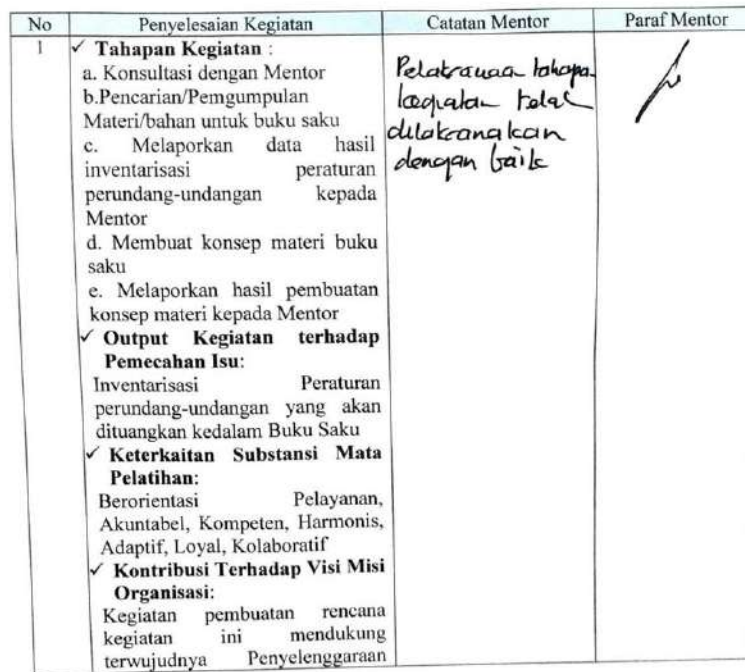 No Penyelesaian Kegiatan Catatan Mentor Paraf Mentor
1 ✓ Tahapan Kegiatan :
a. Konsultasi dengan Mentor
b.Pencarian/Pemgumpulan
Materi/bahan untuk buku saku
c. Melaporkan data hasil
inventarisasi peraturan
perundang-undangan kepada
Mentor
d. Membuat konsep materi buku
saku
e. Melaporkan hasil pembuatan
konsep materi kepada Mentor
✓ Output Kegiatan terhadap
Pemecahan Isu:
Inventarisasi Peraturan
perundang-undangan yang akan
dituangkan kedalam Buku Saku
✓ Keterkaitan Substansi Mata
Pelatihan:
Berorientasi Pelayanan,
Akuntabel, Kompeten, Harmonis,
Adaptif, Loyal, Kolaboratif
✓ Kontribusi Terhadap Visi Misi
Organisasi:
Kegiatan pembuatan rencana
kegiatan ini mendukung
terwujudnya Penyelenggaraan
Pelaksanaan tahapan
kegiatan telah
dilaksanakan
dengan baik